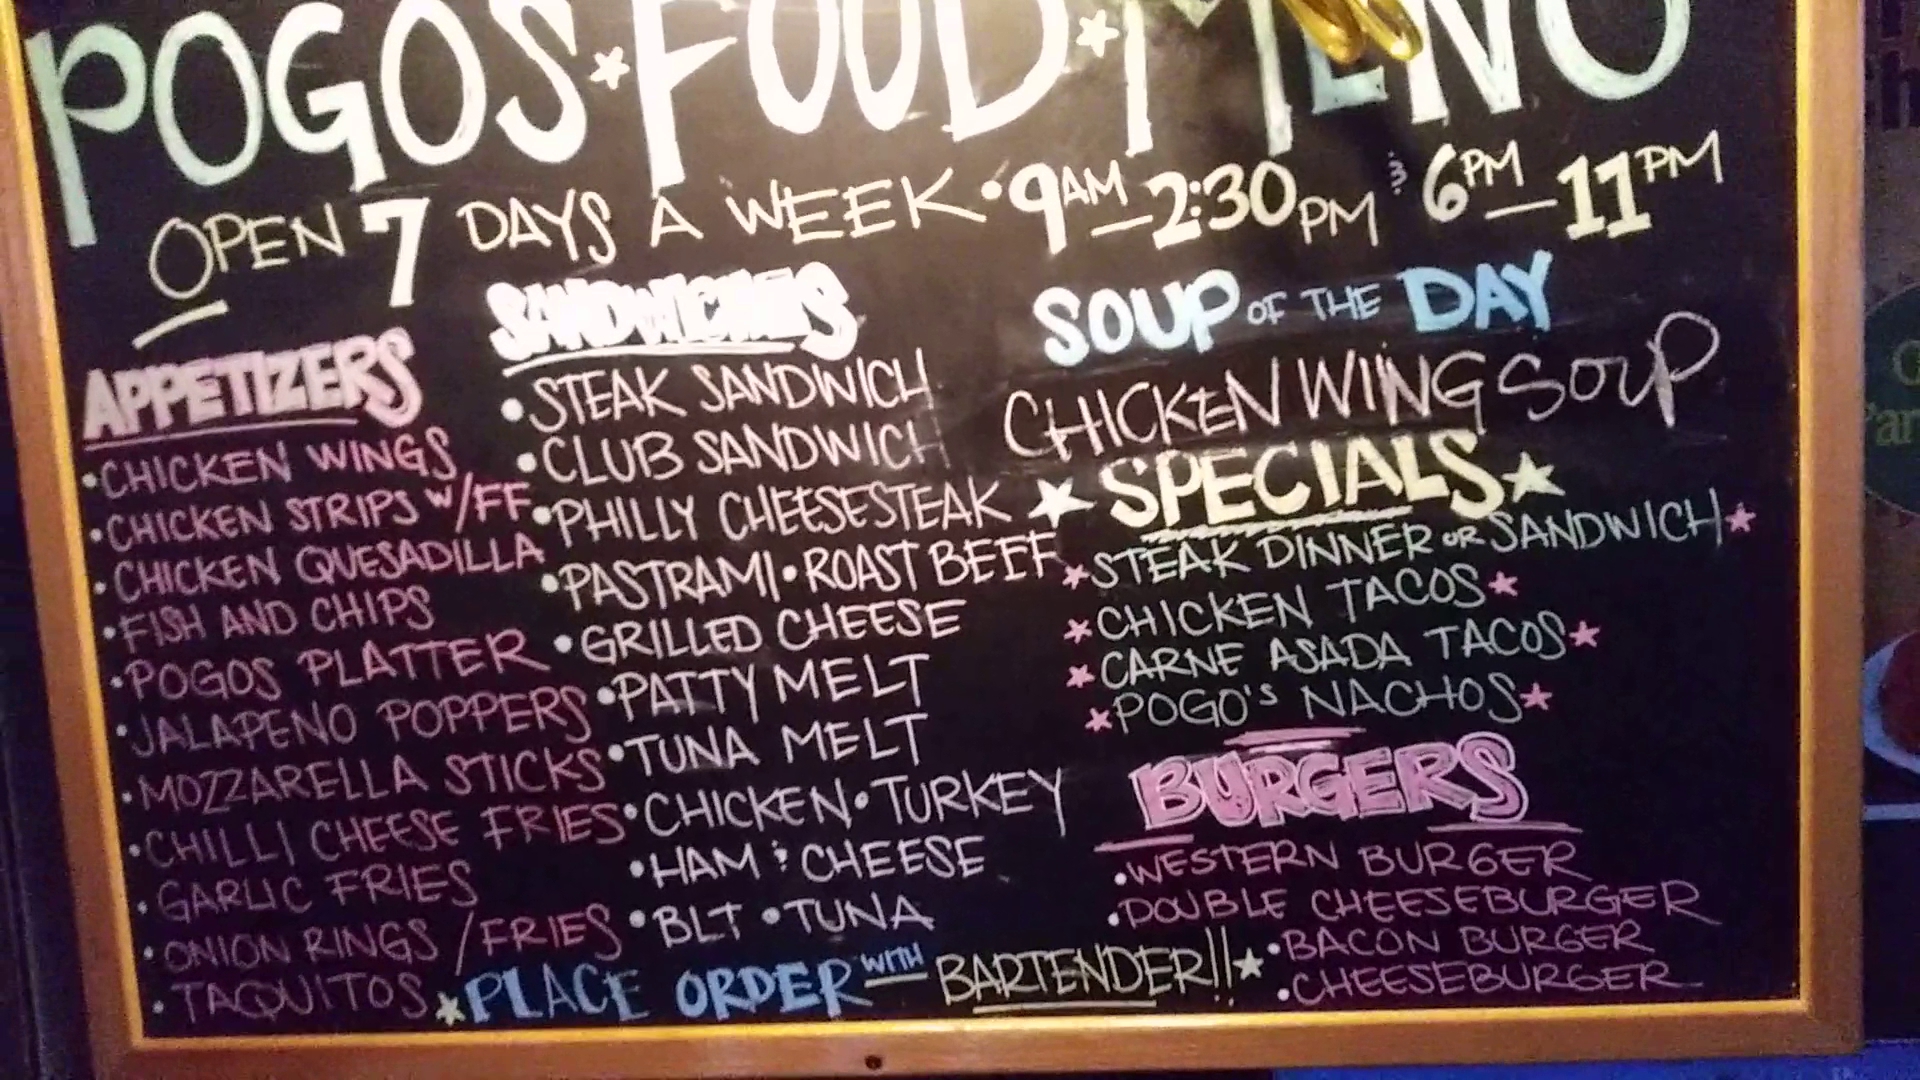 POGOS ★ FOOD ★ MENU
OPEN 7 DAYS A WEEK • 9AM - 2:30PM & 6PM - 11PM
APPETIZERS
• CHICKEN WINGS
• CHICKEN STRIPS W/FF
• CHICKEN QUESADILLA
• FISH AND CHIPS
• POGOS PLATTER
• JALAPENO POPPERS
• MOZZARELLA STICKS
• CHILLI CHEESE FRIES
• GARLIC FRIES
• ONION RINGS / FRIES
• TAQUITOS
SANDWICHES
• STEAK SANDWICH
• CLUB SANDWICH
• PHILLY CHEESESTEAK
• PASTRAMI • ROAST BEEF
• GRILLED CHEESE
• PATTY MELT
• TUNA MELT
• CHICKEN • TURKEY
• HAM & CHEESE
• BLT • TUNA
SOUP OF THE DAY
CHICKEN WING SOUP
★ SPECIALS ★
★ STEAK DINNER OR SANDWICH ★
★ CHICKEN TACOS ★
★ CARNE ASADA TACOS ★
★ POGO'S NACHOS ★
BURGERS
• WESTERN BURGER
• DOUBLE CHEESEBURGER
• BACON BURGER
• CHEESEBURGER
★ PLACE ORDER WITH BARTENDER!! ★